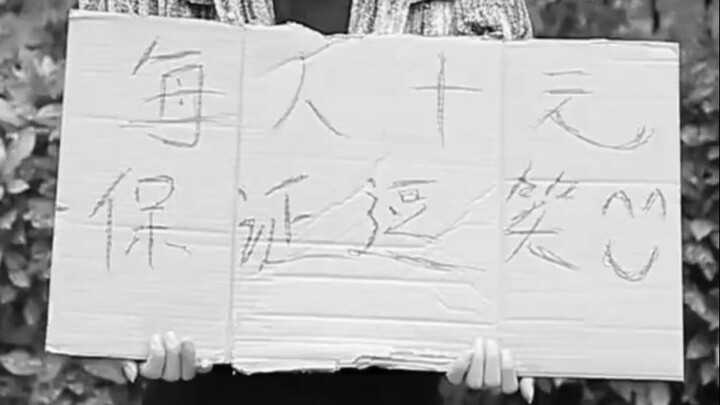 每人十元
保证逗笑